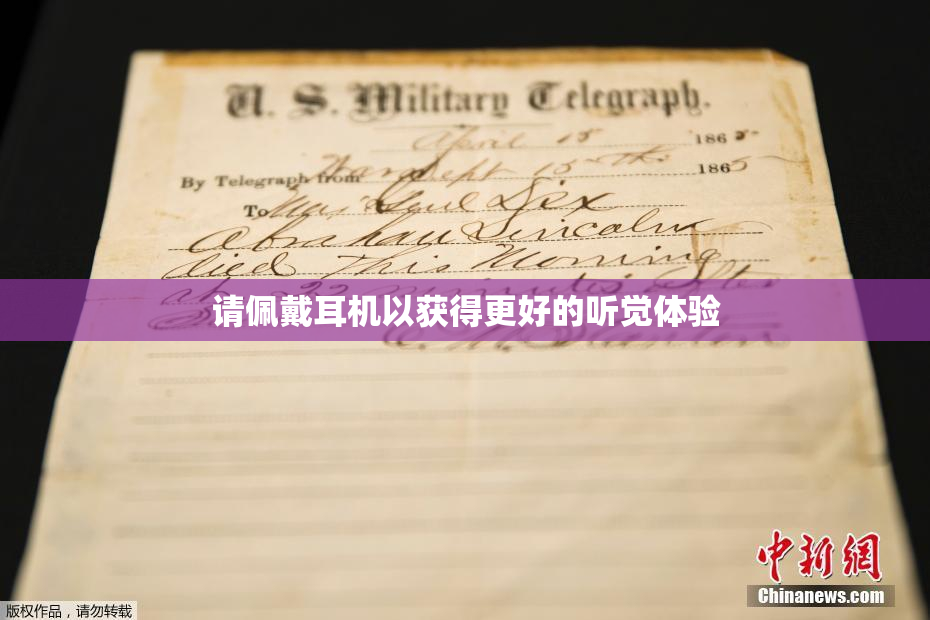 U. S. Military Telegraph.
April 15 1865
By Telegraph from War Dept 15th 1865
To Maj Genl Dix
Abraham Lincoln
died This Morning
22 minutes after
请佩戴耳机以获得更好的听觉体验
中新網
Chinanews.com
版权作品，请勿转载